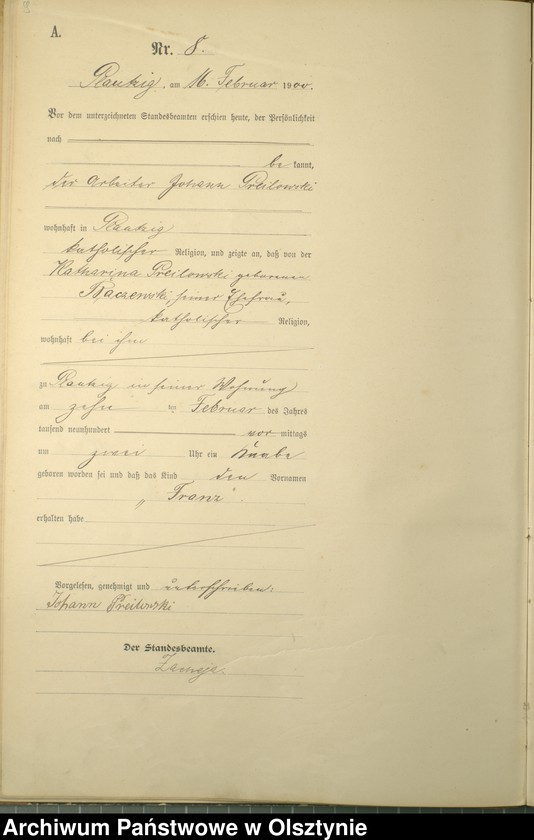 A.
Nr. 8.
am 16. Februar 1900.
Vor dem unterzeichneten Standesbeamten erschien heute, der Persönlichkeit
nach
be kannt,
der Arbeiter Johann Preilowski
wohnhaft in
katholischer Religion, und zeigte an, daß von der
Katharina Preilowski geborenen
Baczewski, seiner Ehefrau,
katholischer Religion,
wohnhaft bei ihm
zu in seiner Wohnung
am zehn ten Februar des Jahres
tausend neunhundert vor mittags
um zwei Uhr ein Knabe
geboren worden sei und daß das Kind den Vornamen
„Franz“.
erhalten habe
Vorgelesen, genehmigt und unterschrieben:
Johann Preilowski
Der Standesbeamte.
Archiwum Państwowe w Olsztynie